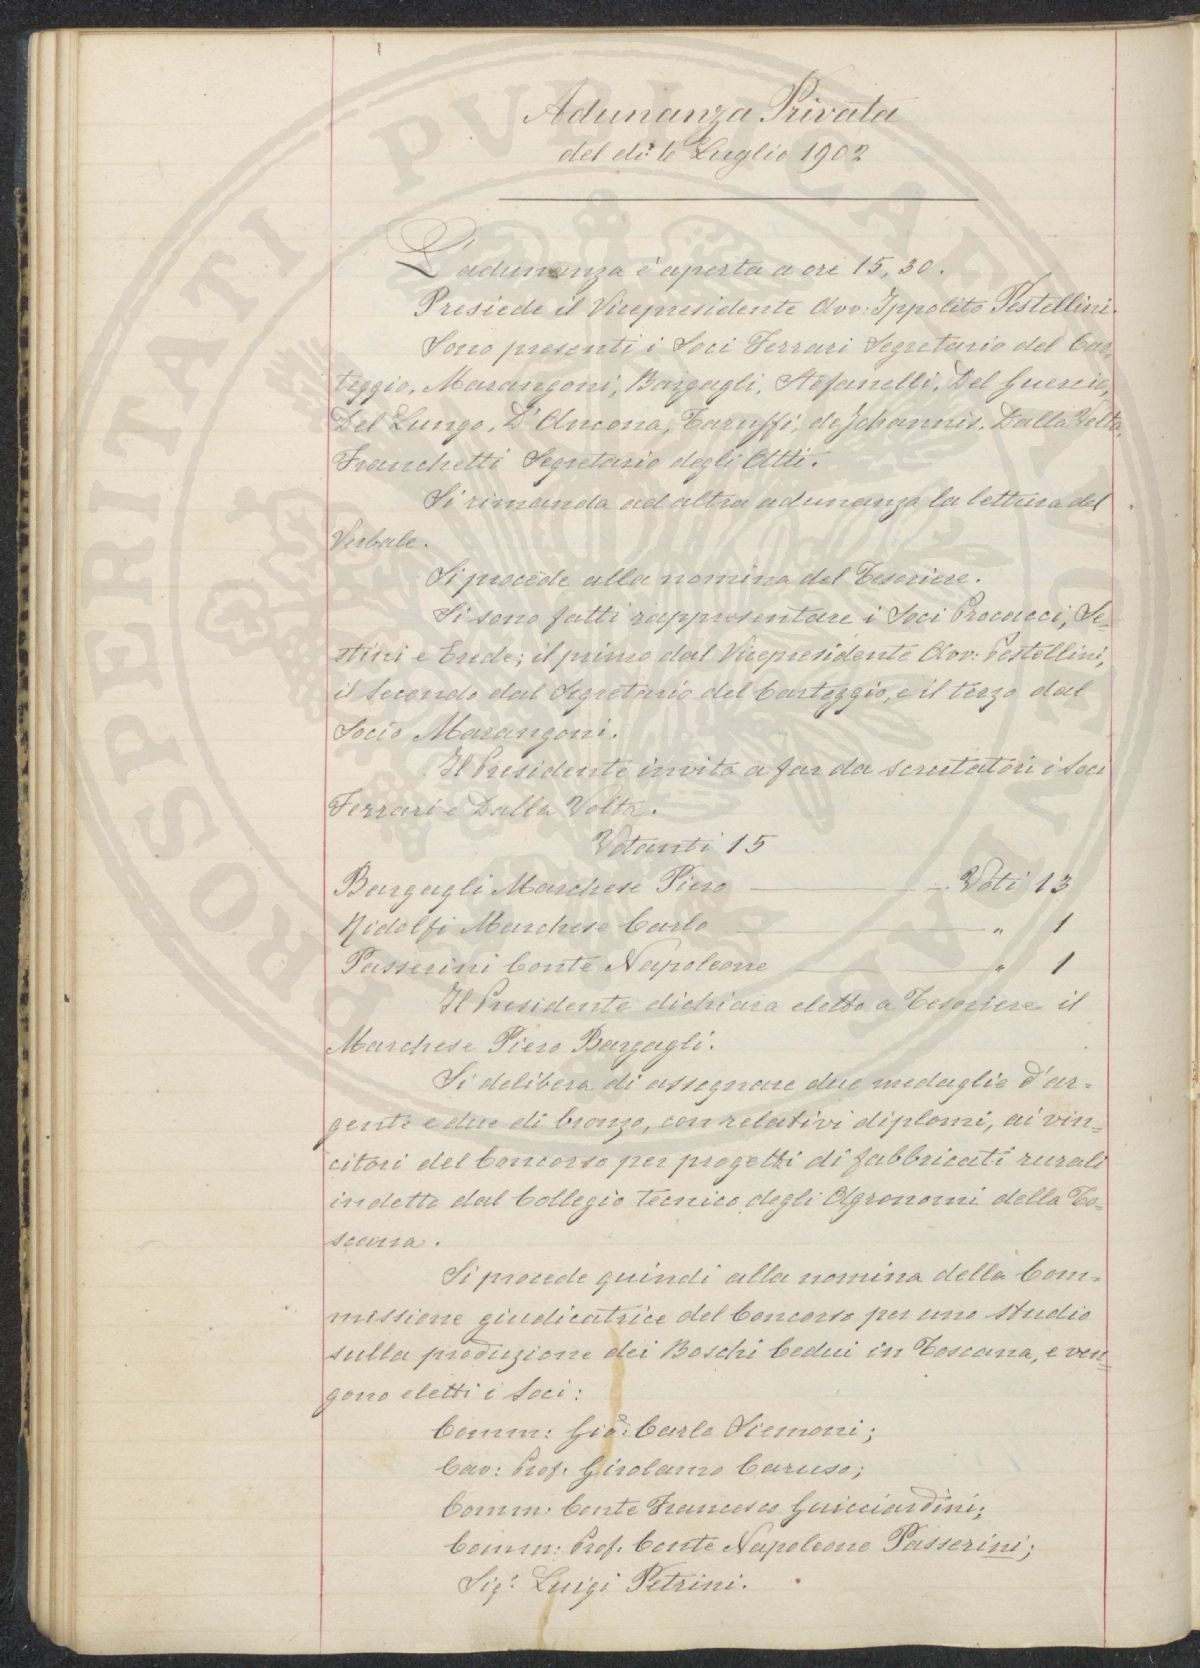 Adunanza Privata
del dì 6 Luglio 1902
L'adunanza è aperta a ore 15,30.
Presiede il Vicepresidente Avv: Ippolito Pestellini.
Sono presenti i Soci Ferrari Segretario del Car-
teggio, Marangoni, Bargagli, Stefanelli, Del Guercio,
Del Lungo, D'Ancona, Taruffi, de Johannis. Dalla Volta,
Franchetti Segretario degli Atti.
Si rimanda ad altra adunanza la lettura del
Verbale.
Si procede alla nomina del Tesoriere.
Si sono fatti rappresentare i Soci Procacci, Se-
stini e Erede; il primo dal Vicepresidente Avv: Pestellini,
il secondo dal Segretario del Carteggio, e il terzo dal
Socio Marangoni.
Il Presidente invita a far da scrutatori i Soci
Ferrari e Dalla Volta.
Votanti 15
Bargagli Marchese Piero — Voti 13
Ridolfi Marchese Carlo — " 1
Passerini Conte Napoleone — " 1
Il Presidente dichiara eletto a Tesoriere il
Marchese Piero Bargagli.
Si delibera di assegnare due medaglie d'ar-
gento e due di bronzo, con relativi diplomi, ai vin-
citori del Concorso per progetti di fabbricati rurali
indetto dal Collegio tecnico degli Agronomi della To-
scana.
Si procede quindi alla nomina della Com-
missione giudicatrice del Concorso per uno studio
sulla produzione dei Boschi Cedui in Toscana, e ven-
gono eletti i Soci:
Comm: Gio: Carlo Siemoni;
Cav: Prof. Girolamo Caruso;
Comm: Conte Francesco Guicciardini;
Comm: Prof. Conte Napoleone Passerini;
Sig: Luigi Petrini.
PROSPERITATI PUBLICAE AUGENDAE